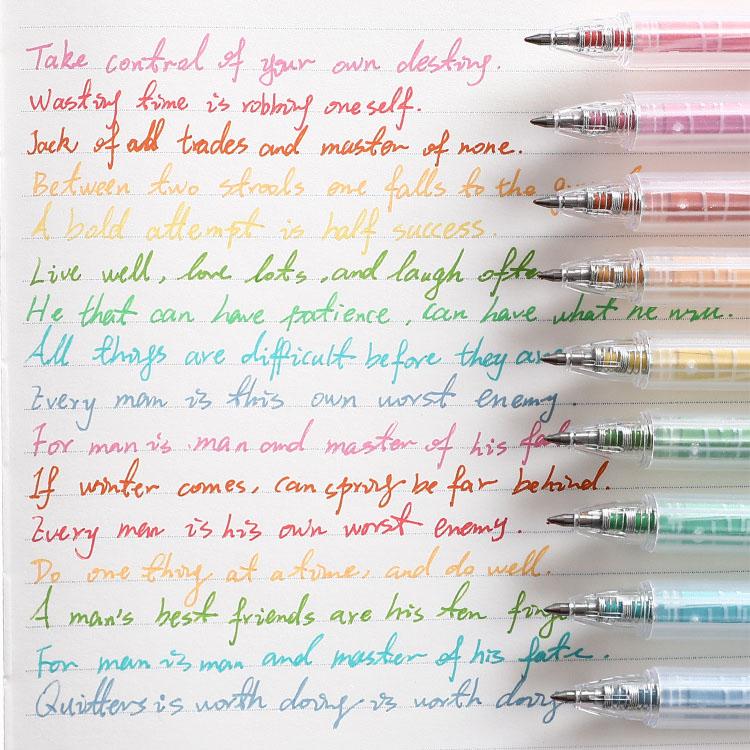 Take control of your own destiny.
Wasting time is robbing oneself.
Jack of all trades and master of none.
Between two strools one falls to the
A bold attempt is half success.
Live well, love lots, and laugh often
He that can have patience, can have what he
All things are difficult before they are
Every man is this own worst enemy.
For man is man and master of his
If winter comes, can spring be far behind.
Every man is his own worst enemy.
Do one thing at a time, and do well.
A man's best friends are his ten
For man is man and master of his fate.
Quitters is worth doing is worth doing